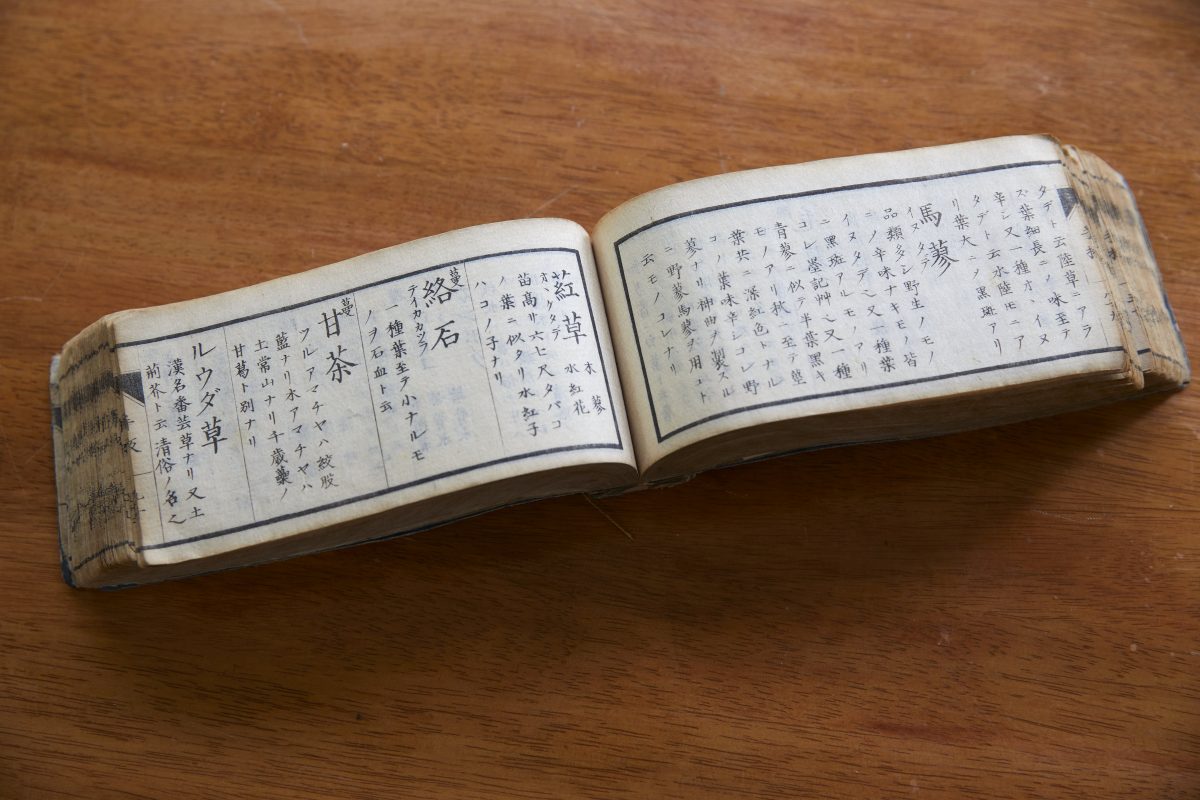 タデト云陸草ニアラ
ズ葉細長ニノ味至テ
辛シ又一種オヽイヌ
タデト云水陸モニア
リ葉大ニノ黒斑アリ
馬蓼
イヌタデ
品類多シ野生ノモノ皆
ニノ辛味ナキモノヲ
イヌタデト又一種葉
ニ黒斑アルモノアリ
コレ墨記艸ト又一種
青蓼ニ似テ半葉黒キ
モノアリ秋ニ至テ莖
葉共ニ深紅色トナル
コノ葉味辛シコレ野
蓼ナリ神曲ヲ製スル
ニ野蓼馬蓼ヲ用ユト
云モノコレナリ
葒草 木蓼 水紅花
オヽタデ
苗高サ六七尺タバコ
ノ葉ニ似タリ水紅子
ハコノ子ナリ
蔓 絡石
テイカカツラ
一種葉至テ小ナルモ
ノヲ石血ト云
蔓 甘茶
ツルアマチヤハ絞股
藍ナリ水アマチヤハ
土常山ナリ千歳藟ノ
甘葛ト別ナリ
ルウダ草
漢名番芸草ナリ又土
荊芥ト云清俗ノ名也